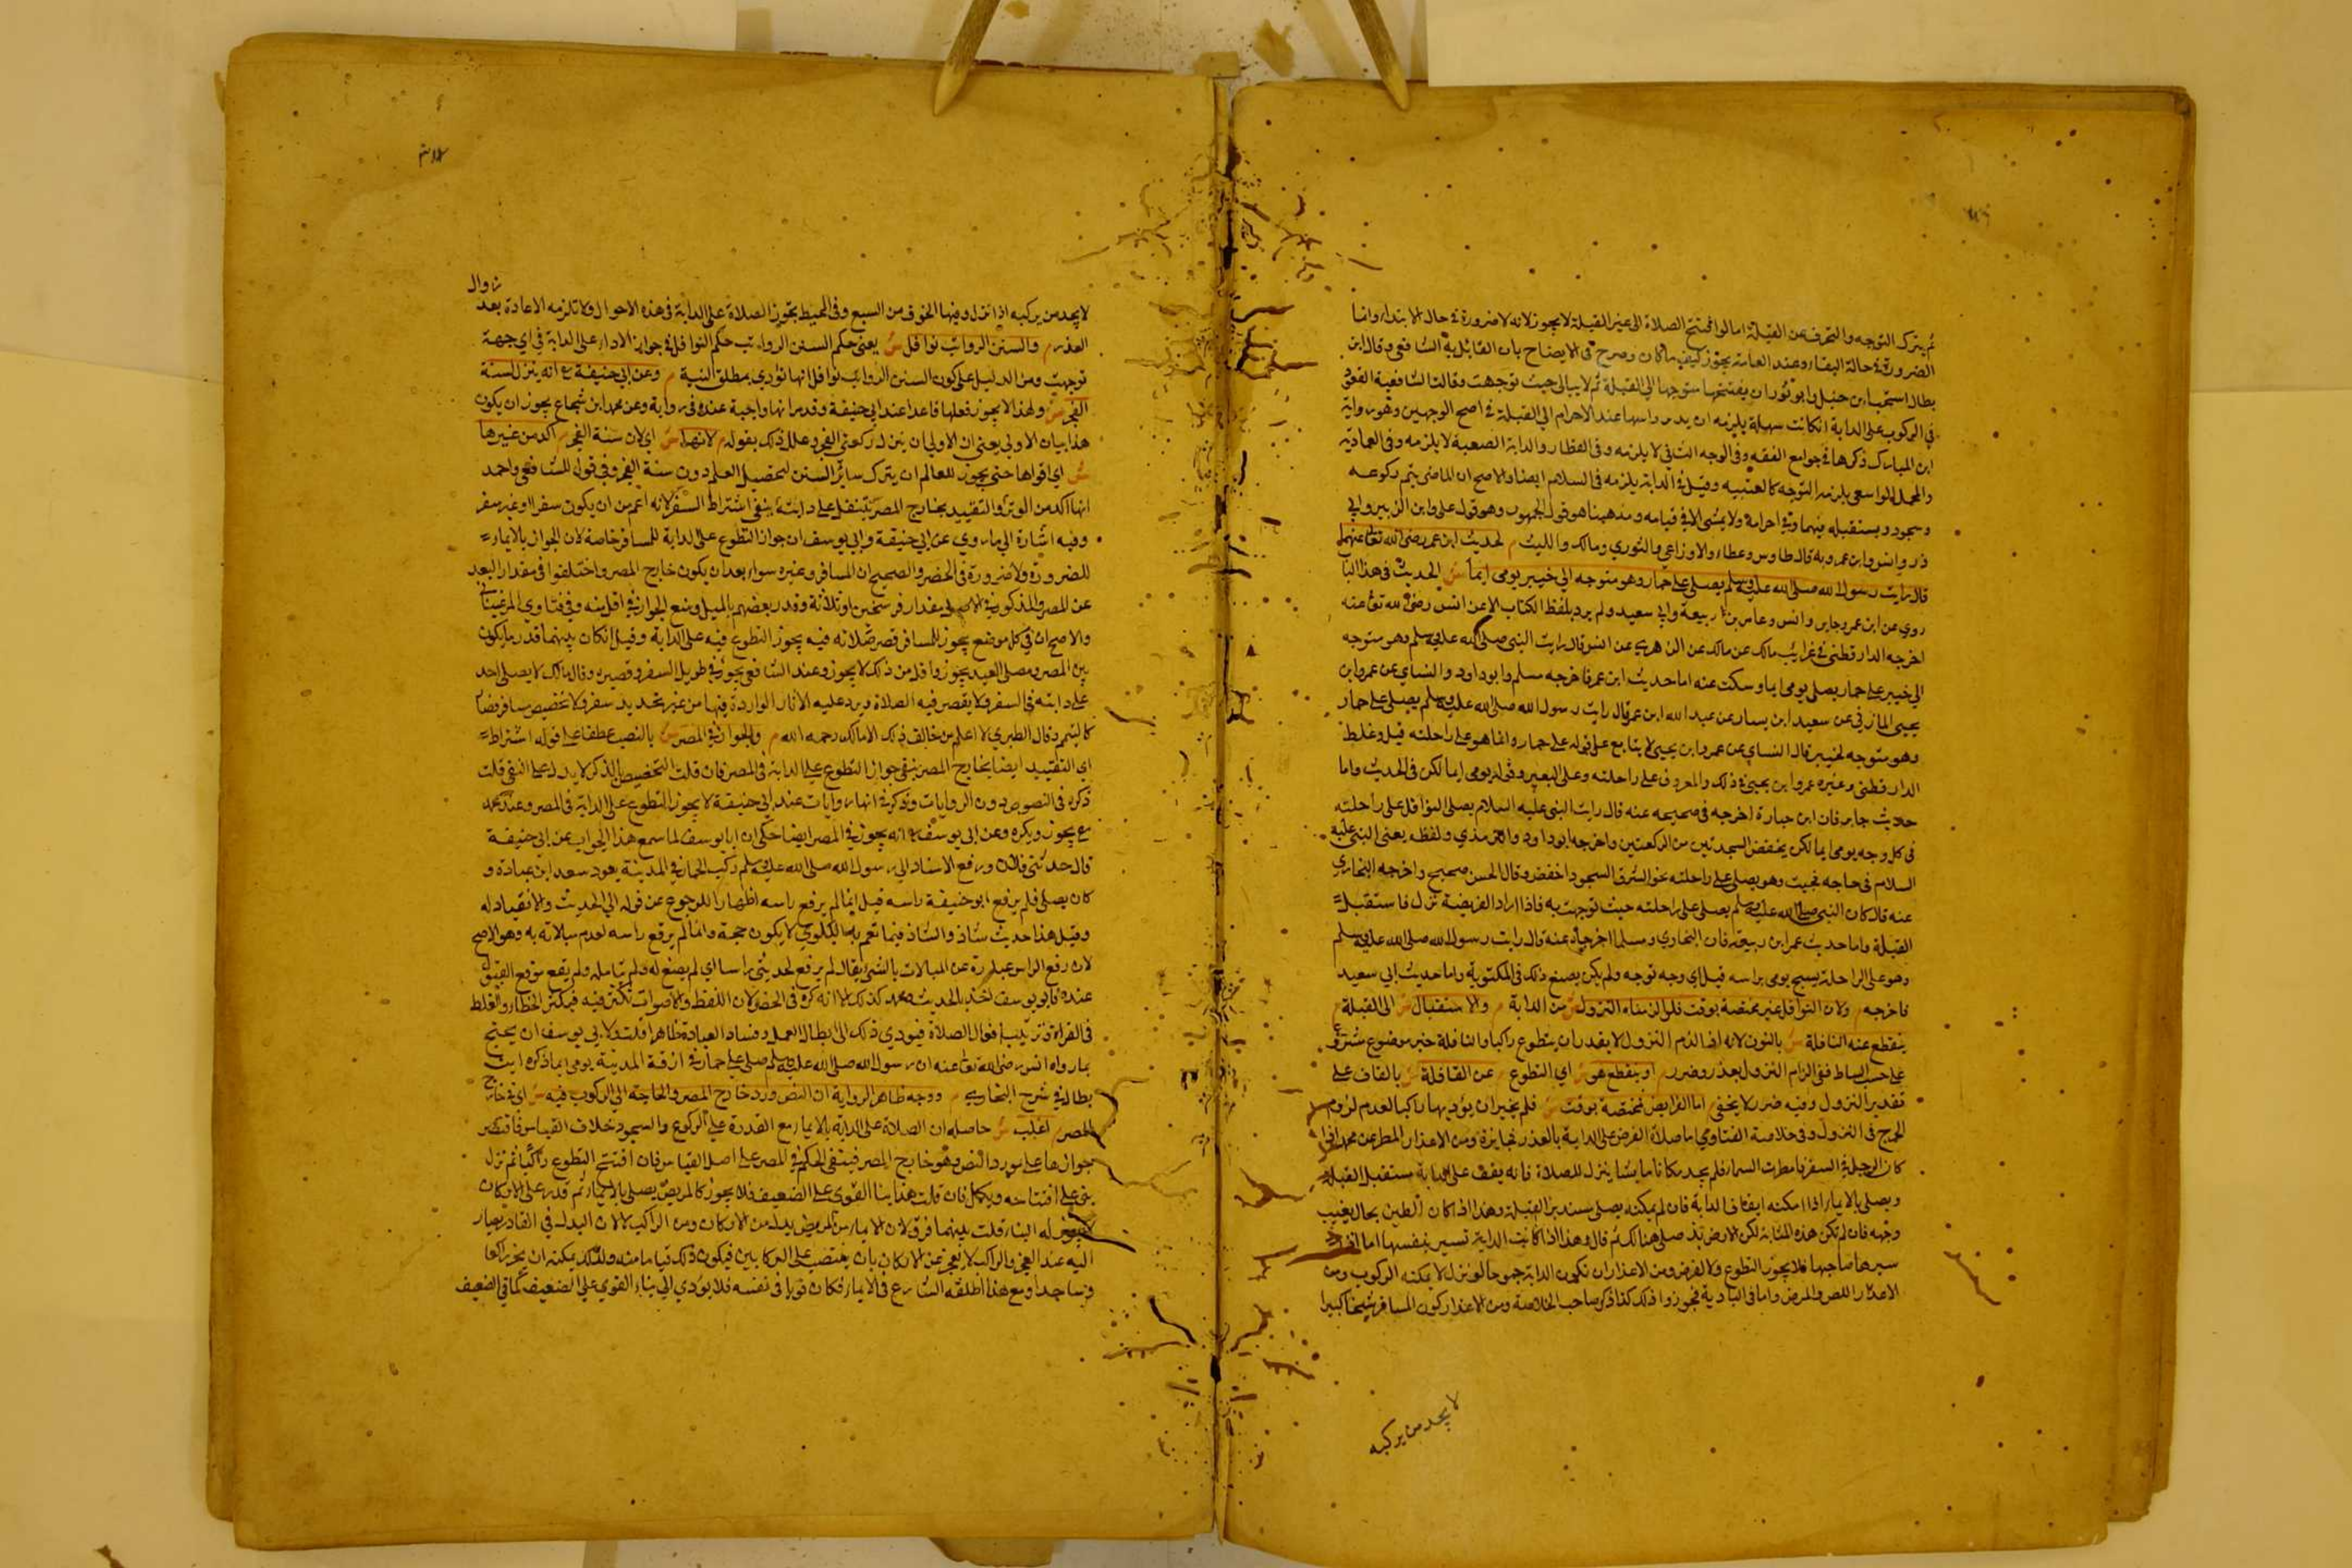 ثم يترك التوجه والتحرف عن القبلة اما لو افتتح الصلاة الى غير القبلة لا يجوز لانه لا ضرورة في حال الابتداء وانما
الضرورة في حالة البقاء وعند العامة يجوز كيف ما كان وصرح في الايضاح بان القائل به الشافعي وقال ابن
بطال استحب ابن حنبل وابو ثور ان يفتتحها متوجها الى القبلة ثم لا يبالي حيث توجهت وقالت الشافعية القعود
في الركوب على الدابة ان كانت سهلة يلزمه ان يدير راسها عند الاحرام الي القبلة في اصح الوجهين وهو رواية
ابن المبارك ذكرها في جوامع الفقه وفي الوجه الثاني لا يلزمه وفي القطار والدابة الصعبة لا يلزمه وفي العمادية
والمحمل الواسع يلزمه التوجه كالسفينة وقيل في الدابة يلزمه في السلام ايضا والاصح ان الماضي يتم ركوعه
وسجوده ويستقبله فيهما وفي احرامه ولا يمشي الا في قيامه ومذهبنا هو قول الجمهور وهو قول علي وابن الزبير وابي
ذر وانس وابن عمر وبه قال طاوس وعطاء والاوزاعي والثوري ومالك والليث م لحديث ابن عمر رضي الله تعا عنهما
قال رايت رسول الله صلى الله عليه وسلم يصلي على حمار وهو متوجه الي خيبر يومي ايماء ش الحديث في هذا الباب
روي عن ابن عمر وجابر وانس وعامر بن ربيعة وابي سعيد ولم يرد بلفظ الكتاب الا عن انس رضي الله تعا عنه
اخرجه الدارقطني في غرايب مالك عن مالك عن الزهري عن انس قال رايت النبي صلى الله عليه وسلم وهو متوجه
الي خيبر على حمار يصلي يومي ايماء وسكت عنه اما حديث ابن عمر فاخرجه مسلم وابو داود والنساي عن عمرو ابن
يحيى المازني عن سعيد ابن يسار عن عبد الله ابن عمر قال رايت رسول الله صلى الله عليه وسلم يصلي على حمار
وهو متوجه لخيبر قال النساي عمرو ابن يحيى لا يتابع على قوله على حمار وانما هو على راحلته قيل وغلط
الدارقطني وغيره عمرو ابن يحيى في ذلك والمعروف على راحلته وعلى البعير وقوله يومي ايما لكن في الحديث واما
حديث جابر فان ابن حبان اخرجه في صحيحه عنه قال رايت النبي عليه السلام يصلي النوافل على راحلته
في كل وجه يومي ايما لكن يخفض السجدتين من الركعتين واخرجه ابو داود والترمذي ولفظه يعني النبي عليه
السلام في حاجة فجيت وهو يصلي على راحلته نحو الشرق السجود اخفض وقال الحسن صحيح واخرجه البخاري
عنه قال كان النبي صلى الله عليه وسلم يصلي على راحلته حيث توجهت به فاذا اراد الفريضة نزل فاستقبل
القبلة واما حديث عمر ابن ربيعة فان البخاري ومسلما اخرجاه عنه قال رايت رسول الله صلى الله عليه وسلم
وهو على الراحلة يسبح يومي براسه قبل اي وجه توجه ولم يكن يصنع ذلك في المكتوبة واما حديث ابي سعيد
فاخرجه م ولان النوافل غير مختصة بوقت فلو الزمناه النزول ش من الدابة م والاستقبال ش الى القبلة م
ينقطع عنه النافلة ش بالنون لانه اذا لزم النزول لا يقدر ان يتطوع راكبا والنافلة خير موضوع شرع
على حسب البساط ففي الزام النزول بعذر وضرر م او ينقطع هو ش اي التطوع م عن القافلة ش بالقاف على
تقدير النزول وفيه ضرر لا يخفى م اما الفرايض مختصة بوقت ش فلم يخير ان يوديها راكبا لعدم لزوم
الحرج في النزول وفي خلاصة الفتاوي اما صلاة الفرض على الدابة بالعذر فجايزة ومن الاعذار المطر عن محمد اذا
كان الرجل في السفر فامطرت السماء فلم يجد مكانا يابسا ينزل للصلاة فانه يقف على الدابة مستقبل القبلة
ويصلي بالايماء اذا امكنه ايقاف الدابة فان لم يمكنه يصلي مستدبر القبلة وهذا اذا كان الطين بحال يغيب
وجهه فان لم تكن هذه المثابة لكن الارض ندية صلى هنالك ثم قال وهذا اذا كانت الدابة تسير بنفسها اما اذا
سيرها صاحبها فلا يجوز التطوع ولا الفرض ومن الاعذار ان تكون الدابة جموحا لو نزل لا يمكنه الركوب ومن
الاعذار اللص والمرض واما في البادية فجوزوا ذلك كذا ذكر صاحب الخلاصة ومن الاعذار كون المسافر شيخا كبيرا
لا يجد من يركبه
زوال
لا يجد من يركبه اذا نزل ومنها الخوف من السبع وفي المحيط تجوز الصلاة على الدابة في هذه الاحوال ولا تلزمه الاعادة بعد
العذر م والسنن الرواتب نوافل ش يعني حكم السنن الرواتب حكم النوافل في جواز الاداء على الدابة في اي جهة
توجهت ومن الدليل على كون السنن الرواتب نوافل انها تؤدي بمطلق النية م وعن ابي حنيفة رح انه ينزل لسنة
الفجر ش ولهذا لا يجوز فعلها قاعدا عند ابي حنيفة وقد مر انها واجبة عنده في رواية وعن محمد ابن شجاع يجوز ان يكون
هذا بيان الاولي يعني ان الاولي ان ينزل لركعتي الفجر وعلل ذلك بقوله م لانها ش اي لان سنة الفجر م اكد من غيرها
ش اي اقواها حتى يجوز للعالم ان يترك ساير السنن لتحصيل العلم دون سنة الفجر وفي قول للشافعي واحمد
انها اكد من الوتر والتقييد بخارج المصر يتنفل على دابته ينفي اشتراط السفر لانه اعم من ان يكون سفرا او غير سفر
وفيه اشارة الي ما روي عن ابي حنيفة وابي يوسف ان جواز التطوع على الدابة للمسافر خاصة لان الجواز بالايماء
للضرورة ولا ضرورة في الحضر والصحيح ان المسافر وغيره سواء بعد ان يكون خارج المصر واختلفوا في مقدار البعد
عن المصر والمذكور في الاصل مقدار فرسخين او ثلاثة وقدر بعضهم بالميل ومنع الجواز في اقل منه وفي فتاوي المرغيناني
والاصح ان في كل موضع يجوز للمسافر قصر صلاته فيه يجوز التطوع فيه على الدابة وقيل ان كان بينهما قدر ما يكون
بين المصر ومصلى العيد يجوز واقل من ذلك لا يجوز وعند الشافعي يجوز في طويل السفر وقصيره وقال مالك لا يصلي احد
على دابته في السفر ولا يقصر فيه الصلاة ويرد عليه الاثار الواردة فيها من غير تحديد سفر ولا تخصيص مسافر فصار
كالتيمم وقال الطبري لا اعلم من خالف ذلك الا مالك رحمه الله م والجواز في المصر ش بالنصب عطفا على قوله اشتراط
اي التقييد ايضا بخارج المصر ينفي جواز التطوع على الدابة في المصر فان قلت التخصيص بالذكر لا يدل على النفي قلت
ذكره في النصوص دون الروايات وذكر في الهارونيات عند ابي حنيفة لا يجوز التطوع على الدابة في المصر وعند محمد
رح يجوز ويكره وعن ابي يوسف رح انه يجوز في المصر ايضا حكي ان ابا يوسف لما سمع هذا الجواب عن ابي حنيفة
قال حدثني فلان ورفع الاسناد الي رسول الله صلى الله عليه وسلم ركب الحمار في المدينة يعود سعد ابن عبادة و
كان يصلي فلم يرفع ابو حنيفة راسه قيل انما لم يرفع راسه اظهارا للرجوع عن قوله الي الحديث والانقياد له
وقيل هذا حديث شاذ والشاذ فيما تعم به البلوي لا يكون حجة وانما لم يرفع راسه لعدم مبالاته به وهو الاصح
لان رفع الراس عبارة عن المبالات بالشيء يقال لم يرفع لحديثي راسا اي لم يصغ له ولم يتامله ولم يقع موقع القبول
عنده فابو يوسف اخذ بالحديث ومحمد كذلك الا انه كره في الحضر لان اللفظ والاصوات تكثر فيه فيكثر الخطاء والغلط
في القراءة وترتيب افعال الصلاة فيودي ذلك الى ابطال العمل وفساد العبادة ظاهرا قلت ولابي يوسف ان يحتج
بما رواه انس رضي الله تعا عنه ان رسول الله صلى الله عليه وسلم صلى على حمار في ازقة المدينة يومي ايما ذكره ابن
بطال في شرح البخاري م ووجه ظاهر الرواية ان النص ورد خارج المصر والحاجة الي الركوب فيه ش اي في خارج
المصر م اغلب ش حاصله ان الصلاة على الدابة بالايماء مع القدرة على الركوع والسجود بخلاف القياس فاقتصر
جوازها على مورد النص وهو خارج المصر فينتفي الحكم في المصر على اصل القياس فان افتتح التطوع راكبا ثم نزل
يبني على افتتاحه ويكمل فان قلت هذا بنا القوي على الضعيف فلا يجوز كالمريض يصلي بالايماء ثم قدر على الاركان
لا يجوز له البناء قلت بينهما فرق لان الايماء من المريض بدل من الاركان ومن الراكب لا لان البدل في القادر يصار
اليه عند العجز والراكب لا يعجز عن الاركان بان ينتصب على الركابين فيكون ذلك قياما منه وكذلك يمكنه ان يخر راكعا
وساجدا ومع هذا اطلقه الشارع في الايماء فكان قويا في نفسه فلا يودي الي بناء القوي علي الضعيف كما في الضعيف